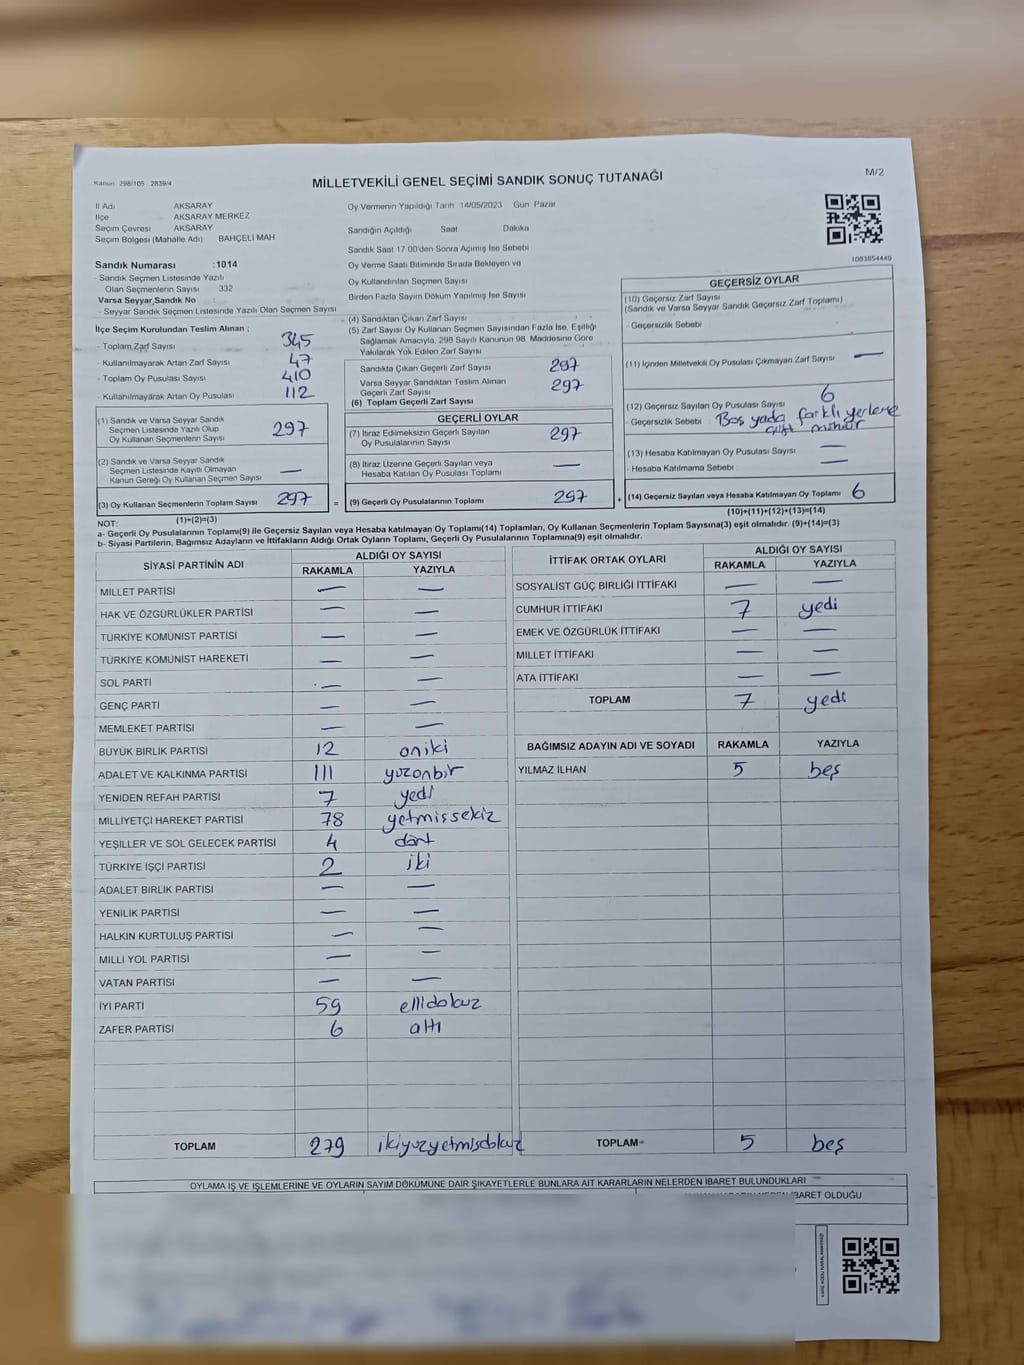 Kanun: 298/105 2839/4
MİLLETVEKİLİ GENEL SEÇİMİ SANDIK SONUÇ TUTANAĞI
M/2
İl Adı AKSARAY
İlçe AKSARAY MERKEZ
Seçim Çevresi AKSARAY
Seçim Bölgesi (Mahalle Adı) BAHÇELİ MAH
Oy Vermenin Yapıldığı Tarih 14/05/2023 Gün Pazar
Sandığın Açıldığı Saat Dakika
Sandık Saat 17 00'den Sonra Açımış İse Sebebi
Oy Verme Saati Bitiminde Sırada Bekleyen ve
Oy Kullandırılan Seçmen Sayısı
Birden Fazla Sayım Döküm Yapılmış İse Sayısı
1083854449
Sandık Numarası :1014
- Sandık Seçmen Listesinde Yazılı
Olan Seçmenlerin Sayısı 332
Varsa Seyyar Sandık No :
- Seyyar Sandık Seçmen Listesinde Yazılı Olan Seçmen Sayısı
İlçe Seçim Kurulundan Teslim Alınan ;
- Toplam Zarf Sayısı 345
- Kullanılmayarak Artan Zarf Sayısı 47
- Toplam Oy Pusulası Sayısı 410
- Kullanılmayarak Artan Oy Pusulası 112
(1) Sandık ve Varsa Seyyar Sandık
Seçmen Listesinde Yazılı Olup
Oy Kullanan Seçmenlerin Sayısı 297
(2) Sandık ve Varsa Seyyar Sandık
Seçmen Listesinde Kayıtlı Olmayan
Kanun Gereği Oy Kullanan Seçmen Sayısı —
(3) Oy Kullanan Seçmenlerin Toplam Sayısı 297 =
(1)+(2)=(3)
(4) Sandıktan Çıkan Zarf Sayısı
(5) Zarf Sayısı Oy Kullanan Seçmen Sayısından Fazla İse, Eşitliği
Sağlamak Amacıyla, 298 Sayılı Kanunun 98. Maddesine Göre
Yakılarak Yok Edilen Zarf Sayısı
Sandıkta Çıkan Geçerli Zarf Sayısı 297
Varsa Seyyar Sandıktan Teslim Alınan
Geçerli Zarf Sayısı 297
(6) Toplam Geçerli Zarf Sayısı
GEÇERLİ OYLAR
(7) İtiraz Edilmeksizin Geçerli Sayılan
Oy Pusulalarının Sayısı 297
(8) İtiraz Üzerine Geçerli Sayılan veya
Hesaba Katılan Oy Pusulası Toplamı —
(9) Geçerli Oy Pusulalarının Toplamı 297 +
GEÇERSİZ OYLAR
(10) Geçersiz Zarf Sayısı
(Sandık ve Varsa Seyyar Sandık Geçersiz Zarf Toplamı)
- Geçersizlik Sebebi
(11) İçinden Milletvekili Oy Pusulası Çıkmayan Zarf Sayısı —
(12) Geçersiz Sayılan Oy Pusulası Sayısı 6
- Geçersizlik Sebebi Boş yada farklı yerlere
çift mühür
(13) Hesaba Katılmayan Oy Pusulası Sayısı —
- Hesaba Katılmama Sebebi —
(14) Geçersiz Sayılan veya Hesaba Katılmayan Oy Toplamı 6
(10)+(11)+(12)+(13)=(14)
NOT:
a- Geçerli Oy Pusulalarının Toplamı(9) ile Geçersiz Sayılan veya Hesaba katılmayan Oy Toplamı(14) Toplamları, Oy Kullanan Seçmenlerin Toplam Sayısına(3) eşit olmalıdır. (9)+(14)=(3)
b- Siyasi Partilerin, Bağımsız Adayların ve İttifakların Aldığı Ortak Oyların Toplamı, Geçerli Oy Pusulalarının Toplamına(9) eşit olmalıdır.
SİYASİ PARTİNİN ADI ALDIĞI OY SAYISI
RAKAMLA YAZIYLA
MİLLET PARTİSİ — —
HAK VE ÖZGÜRLÜKLER PARTİSİ — —
TÜRKİYE KOMÜNİST PARTİSİ — —
TÜRKİYE KOMÜNİST HAREKETİ — —
SOL PARTİ — —
GENÇ PARTİ — —
MEMLEKET PARTİSİ — —
BÜYÜK BİRLİK PARTİSİ 12 oniki
ADALET VE KALKINMA PARTİSİ 111 yüzonbir
YENİDEN REFAH PARTİSİ 7 yedi
MİLLİYETÇİ HAREKET PARTİSİ 78 yetmissekiz
YEŞİLLER VE SOL GELECEK PARTİSİ 4 dört
TÜRKİYE İŞÇİ PARTİSİ 2 iki
ADALET BİRLİK PARTİSİ — —
YENİLİK PARTİSİ — —
HALKIN KURTULUŞ PARTİSİ — —
MİLLİ YOL PARTİSİ — —
VATAN PARTİSİ — —
İYİ PARTİ 59 ellidokuz
ZAFER PARTİSİ 6 altı
TOPLAM 279 ikiyüzyetmişdokuz
İTTİFAK ORTAK OYLARI ALDIĞI OY SAYISI
RAKAMLA YAZIYLA
SOSYALİST GÜÇ BİRLİĞİ İTTİFAKI — —
CUMHUR İTTİFAKI 7 yedi
EMEK VE ÖZGÜRLÜK İTTİFAKI — —
MİLLET İTTİFAKI — —
ATA İTTİFAKI — —
TOPLAM 7 yedi
BAĞIMSIZ ADAYIN ADI VE SOYADI RAKAMLA YAZIYLA
YILMAZ İLHAN 5 beş
TOPLAM 5 beş
OYLAMA İŞ VE İŞLEMLERİNE VE OYLARIN SAYIM DÖKÜMÜNE DAİR ŞİKAYETLERLE BUNLARA AİT KARARLARIN NELERDEN İBARET BULUNDUKLARI
İBARET OLDUĞU